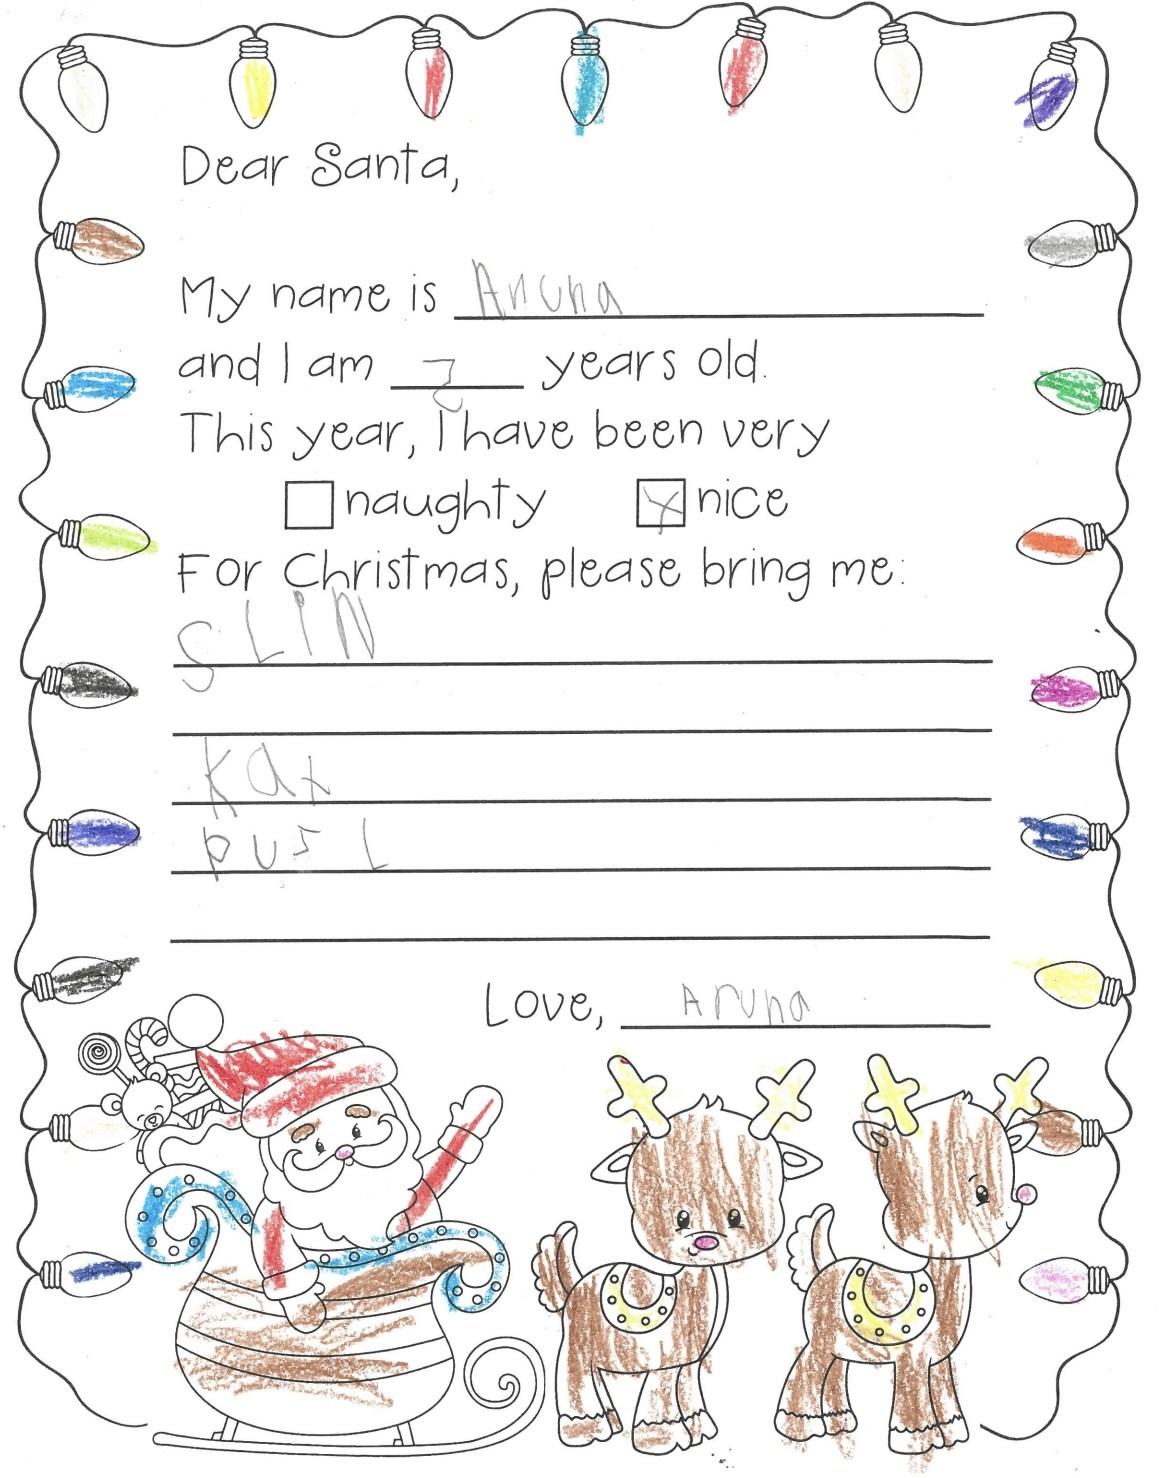 Dear Santa,
My name is Aruna
and I am 7 years old.
This year, I have been very
naughty nice
For Christmas, please bring me:
SLIN
Kat
pusL
Love, Aruna